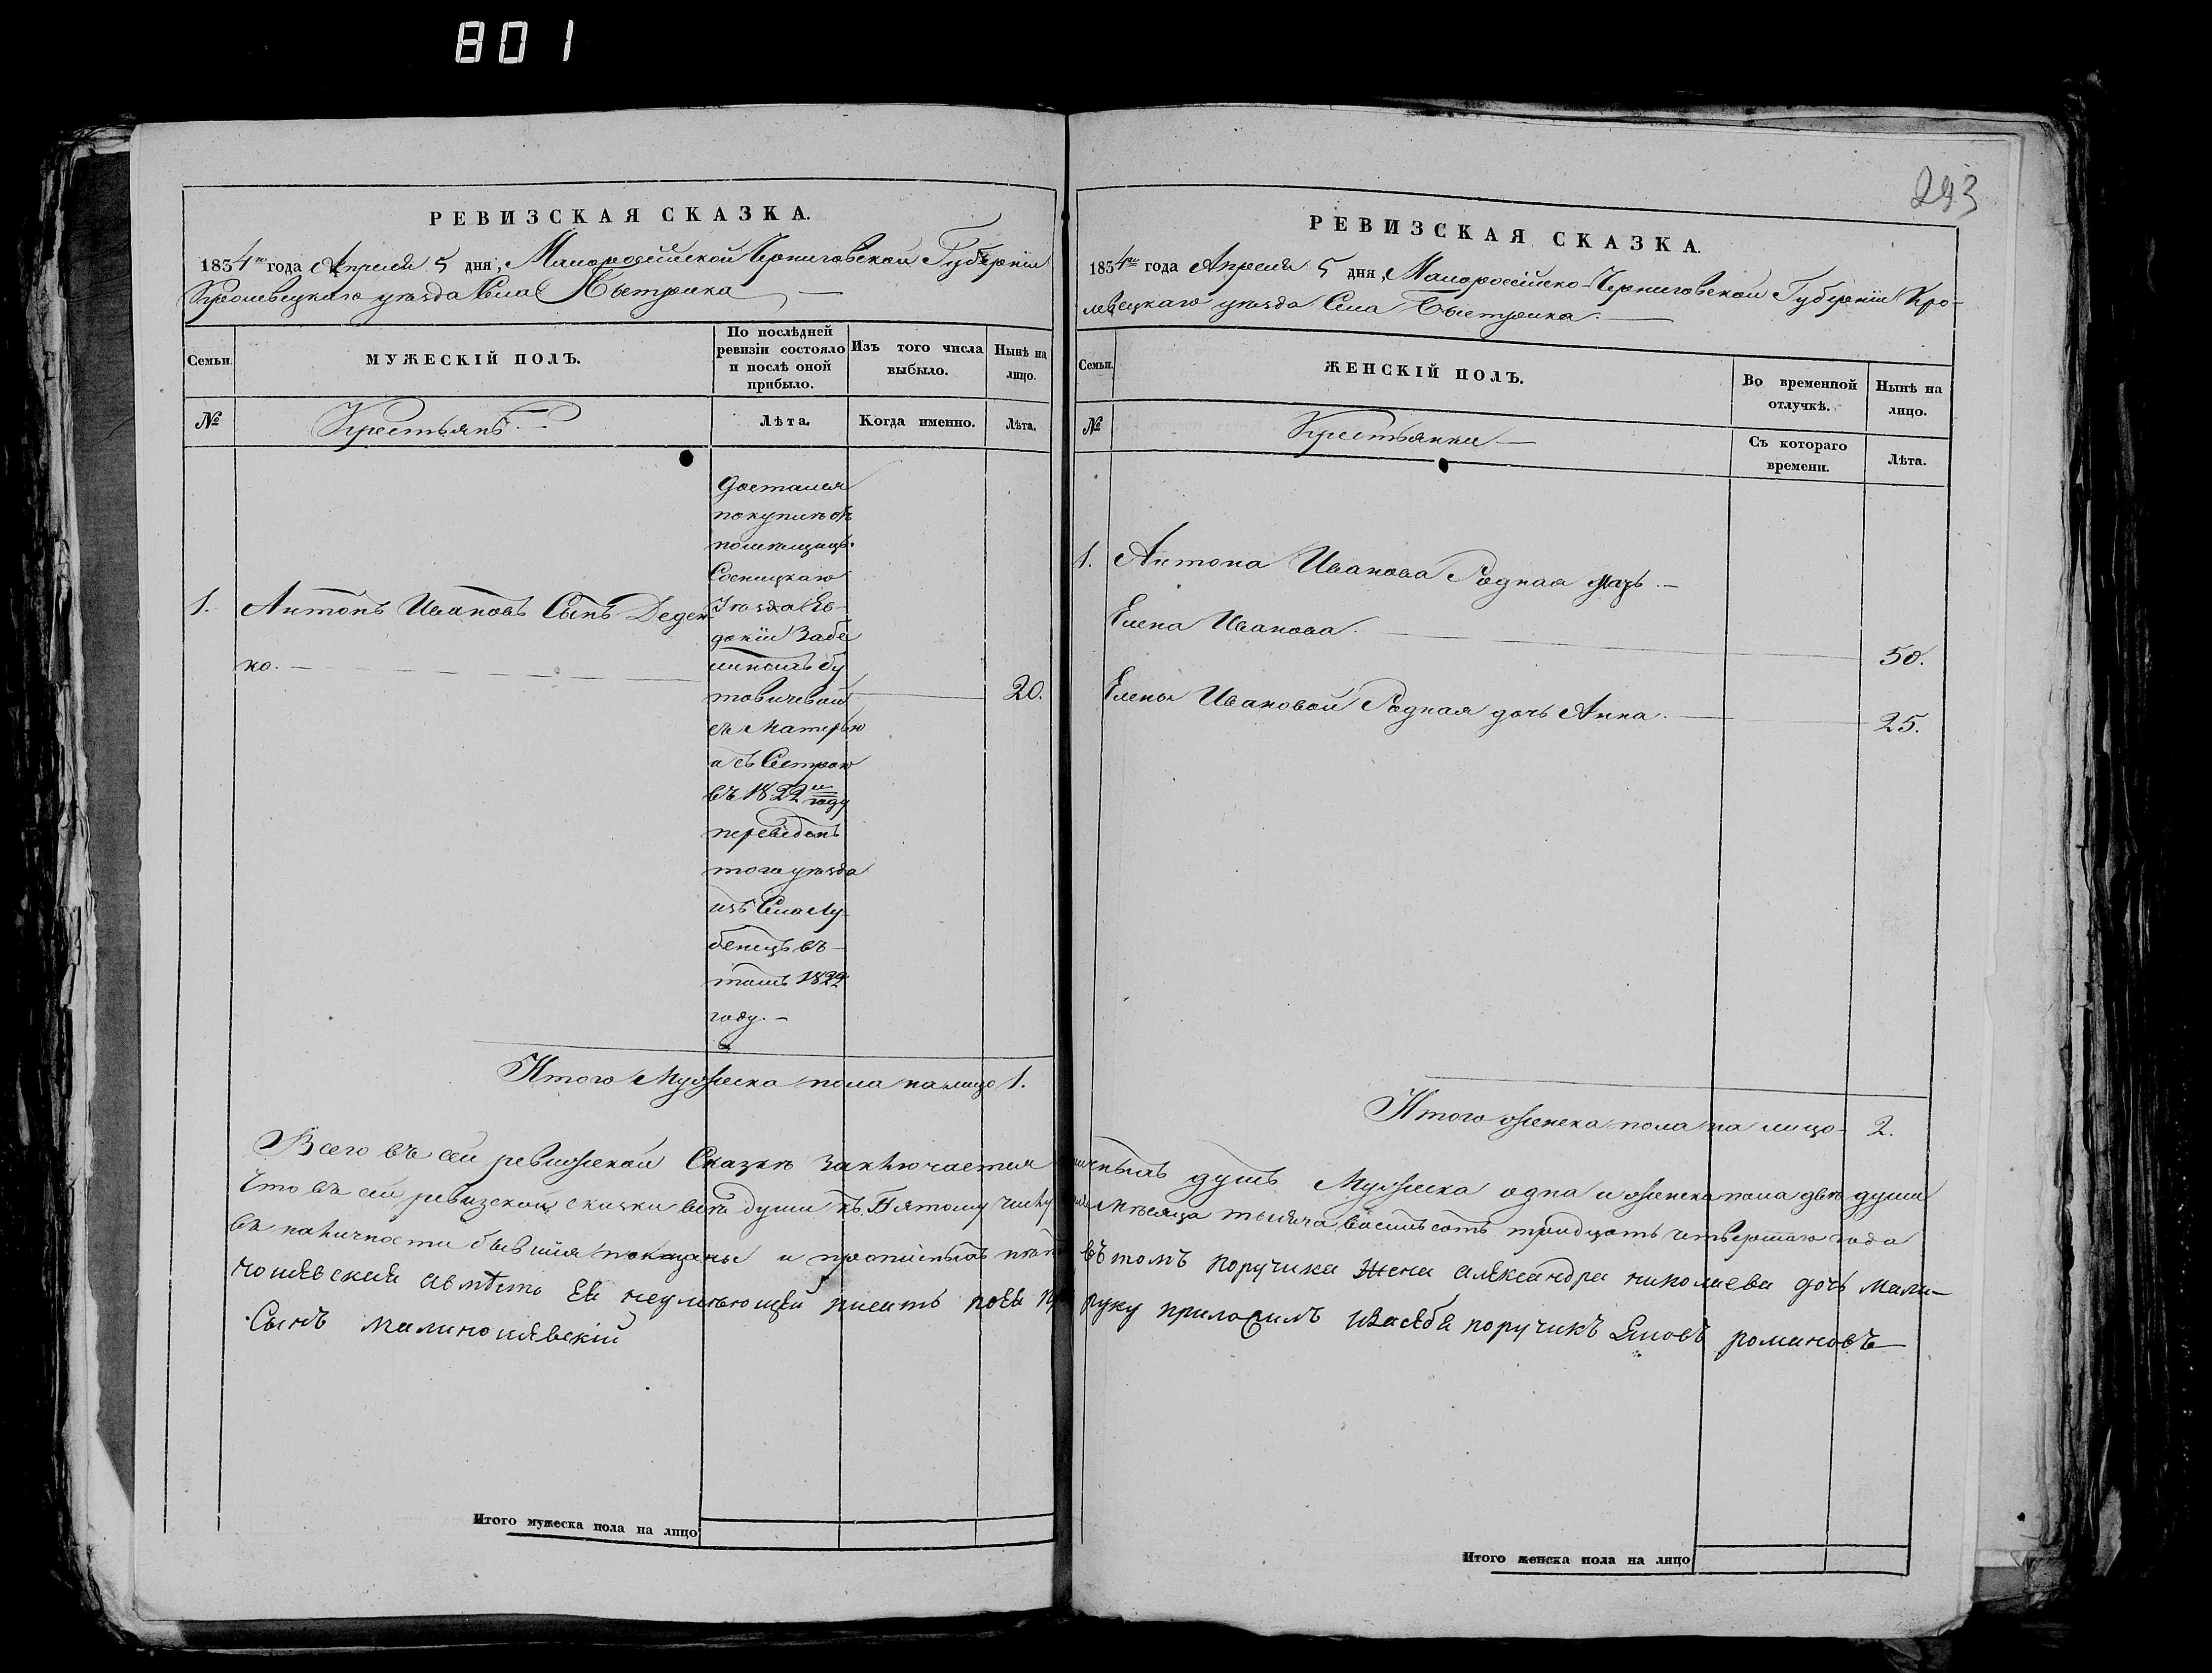 801
293
РЕВИЗСКАЯ СКАЗКА.
1834го года Апреля 5 дня, Малороссійской Черниговской Губерніи
Кролевецкаго уѣзда Села Быстрика
Семьи.
МУЖЕСКІЙ ПОЛЪ.
По послѣдней
ревизіи состояло
и послѣ оной
прибыло.
Изъ того числа
выбыло.
Нынѣ на
лицо.
№
Крестьянъ
Лѣта.
Когда именно.
Лѣта.
1. Антонъ Ивановъ Сынъ Деден
ко.
20.
Достался
покупкѣ отъ
помѣщицы
Сосницкаго
Уѣзда Ев-
докіи Забе
линоиъ бу
товичевой
съ Матерью
и съ Сестрою
въ 1822м году
переведенъ
того уѣзда
изъ Села Лу-
бенецъ въ
томъ 1822
году.
Итого Мужеска пола на лицо 1.
РЕВИЗСКАЯ СКАЗКА.
1834го года Апреля 5 дня, Малороссійско-Черниговской Губерніи Кро-
левецкаго уѣзда Села Быстрика.
Семьи.
ЖЕНСКІЙ ПОЛЪ.
Во временной
отлучкѣ.
Нынѣ на
лицо.
№
Крестьянки
Съ котораго
времени.
Лѣта.
1. Антона Иванова Родная Мать.
Елена Иванова. 50.
Елены Ивановой Родная дочь Анна. 25.
Итого женска пола на лицо 2.
Всего въ сей ревижской Сказкѣ заключается душъ Мужеска одна и женска пола двѣ души
Что въ сей ревизской сказки всѣ души къ Пятому числу Мѣсяца тысяча восемьсотъ тридцать четвертого года
въ наличности бывшия показаны и прописныхъ нѣтъ въ томъ поручика Жена александра николаева дочь мали-
ношевская авмѣсто Ея неумѣющей писать поея руку приложилъ изасебя поручикъ Яковъ романовъ
Сынъ малиношевскій
Итого мужеска пола на лицо
Итого женска пола на лицо